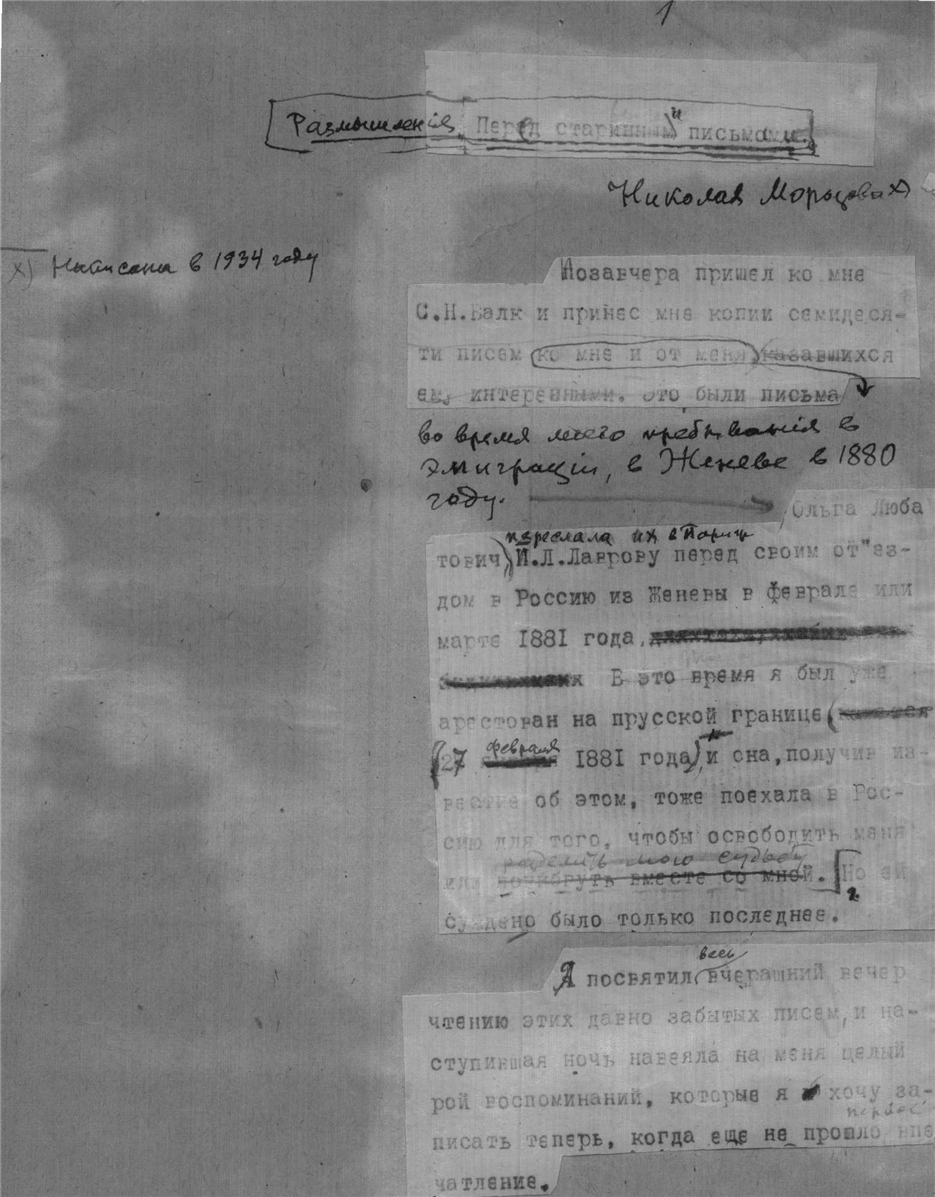 1
Размышленія „Перед старинными" письмами.
Николая Морозова х)
х) Написана в 1934 году
Позавчера пришел ко мне
С.Н.Валк и принес мне копии семидеся-
ти писем ко мне и от меня казавшихся
ему интересными. Это были письма
во время моего пребыванія в
эмиграціи, в Женеве в 1880
году.
Ольга Люба
переслала их в Париж
тович П.Л.Лаврову перед своим от"ез-
дом в Россию из Женевы в феврале или
марте 1881 года,
В это время я был уже
арестован на прусской границе (кажется
(27 февраля 1881 года) и она, получив из-
вестие об этом, тоже поехала в Рос-
сию для того, чтобы освободить меня
разделить мою судьбу
или погибгуть вместе со мной. Но ей
суждено было только последнее.
весь
Я посвятил вчерашний вечер
чтению этих давно забытых писем, и на-
ступившая ночь навеяла на меня целый
рой воспоминаний, которые я хочу за-
первое
писать теперь, когда еще не прошло впе
чатление.